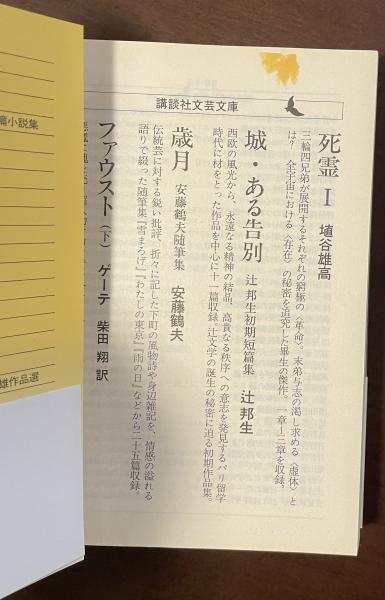 講談社文芸文庫
死霊Ⅰ 埴谷雄高
三輪四兄弟が展開するそれぞれの窮極の〈革命〉。末弟与志の渇し求める〈虚体〉と
は？ 全宇宙における〈存在〉の秘密を追究した畢生の傑作。一章―三章を収録。
城・ある告別 辻邦生初期短篇集 辻邦生
西欧の風光から、永遠なる精神の結晶、高貴なる秩序への意志を発見するパリ留学
時代に材をとった作品を中心に十一篇収録。辻文学の誕生の秘密に迫る初期作品集。
歳月 安藤鶴夫随筆集 安藤鶴夫
伝統芸に対する鋭い批評、折々に記した下町の風物詩や身辺雑記を、情感の溢れる
語りで綴った随筆集『雪まろげ』『わたしの東京』『雨の日』などから二十五篇収録。
ファウスト（下） ゲーテ 柴田翔訳
篇小説集
雄作品選